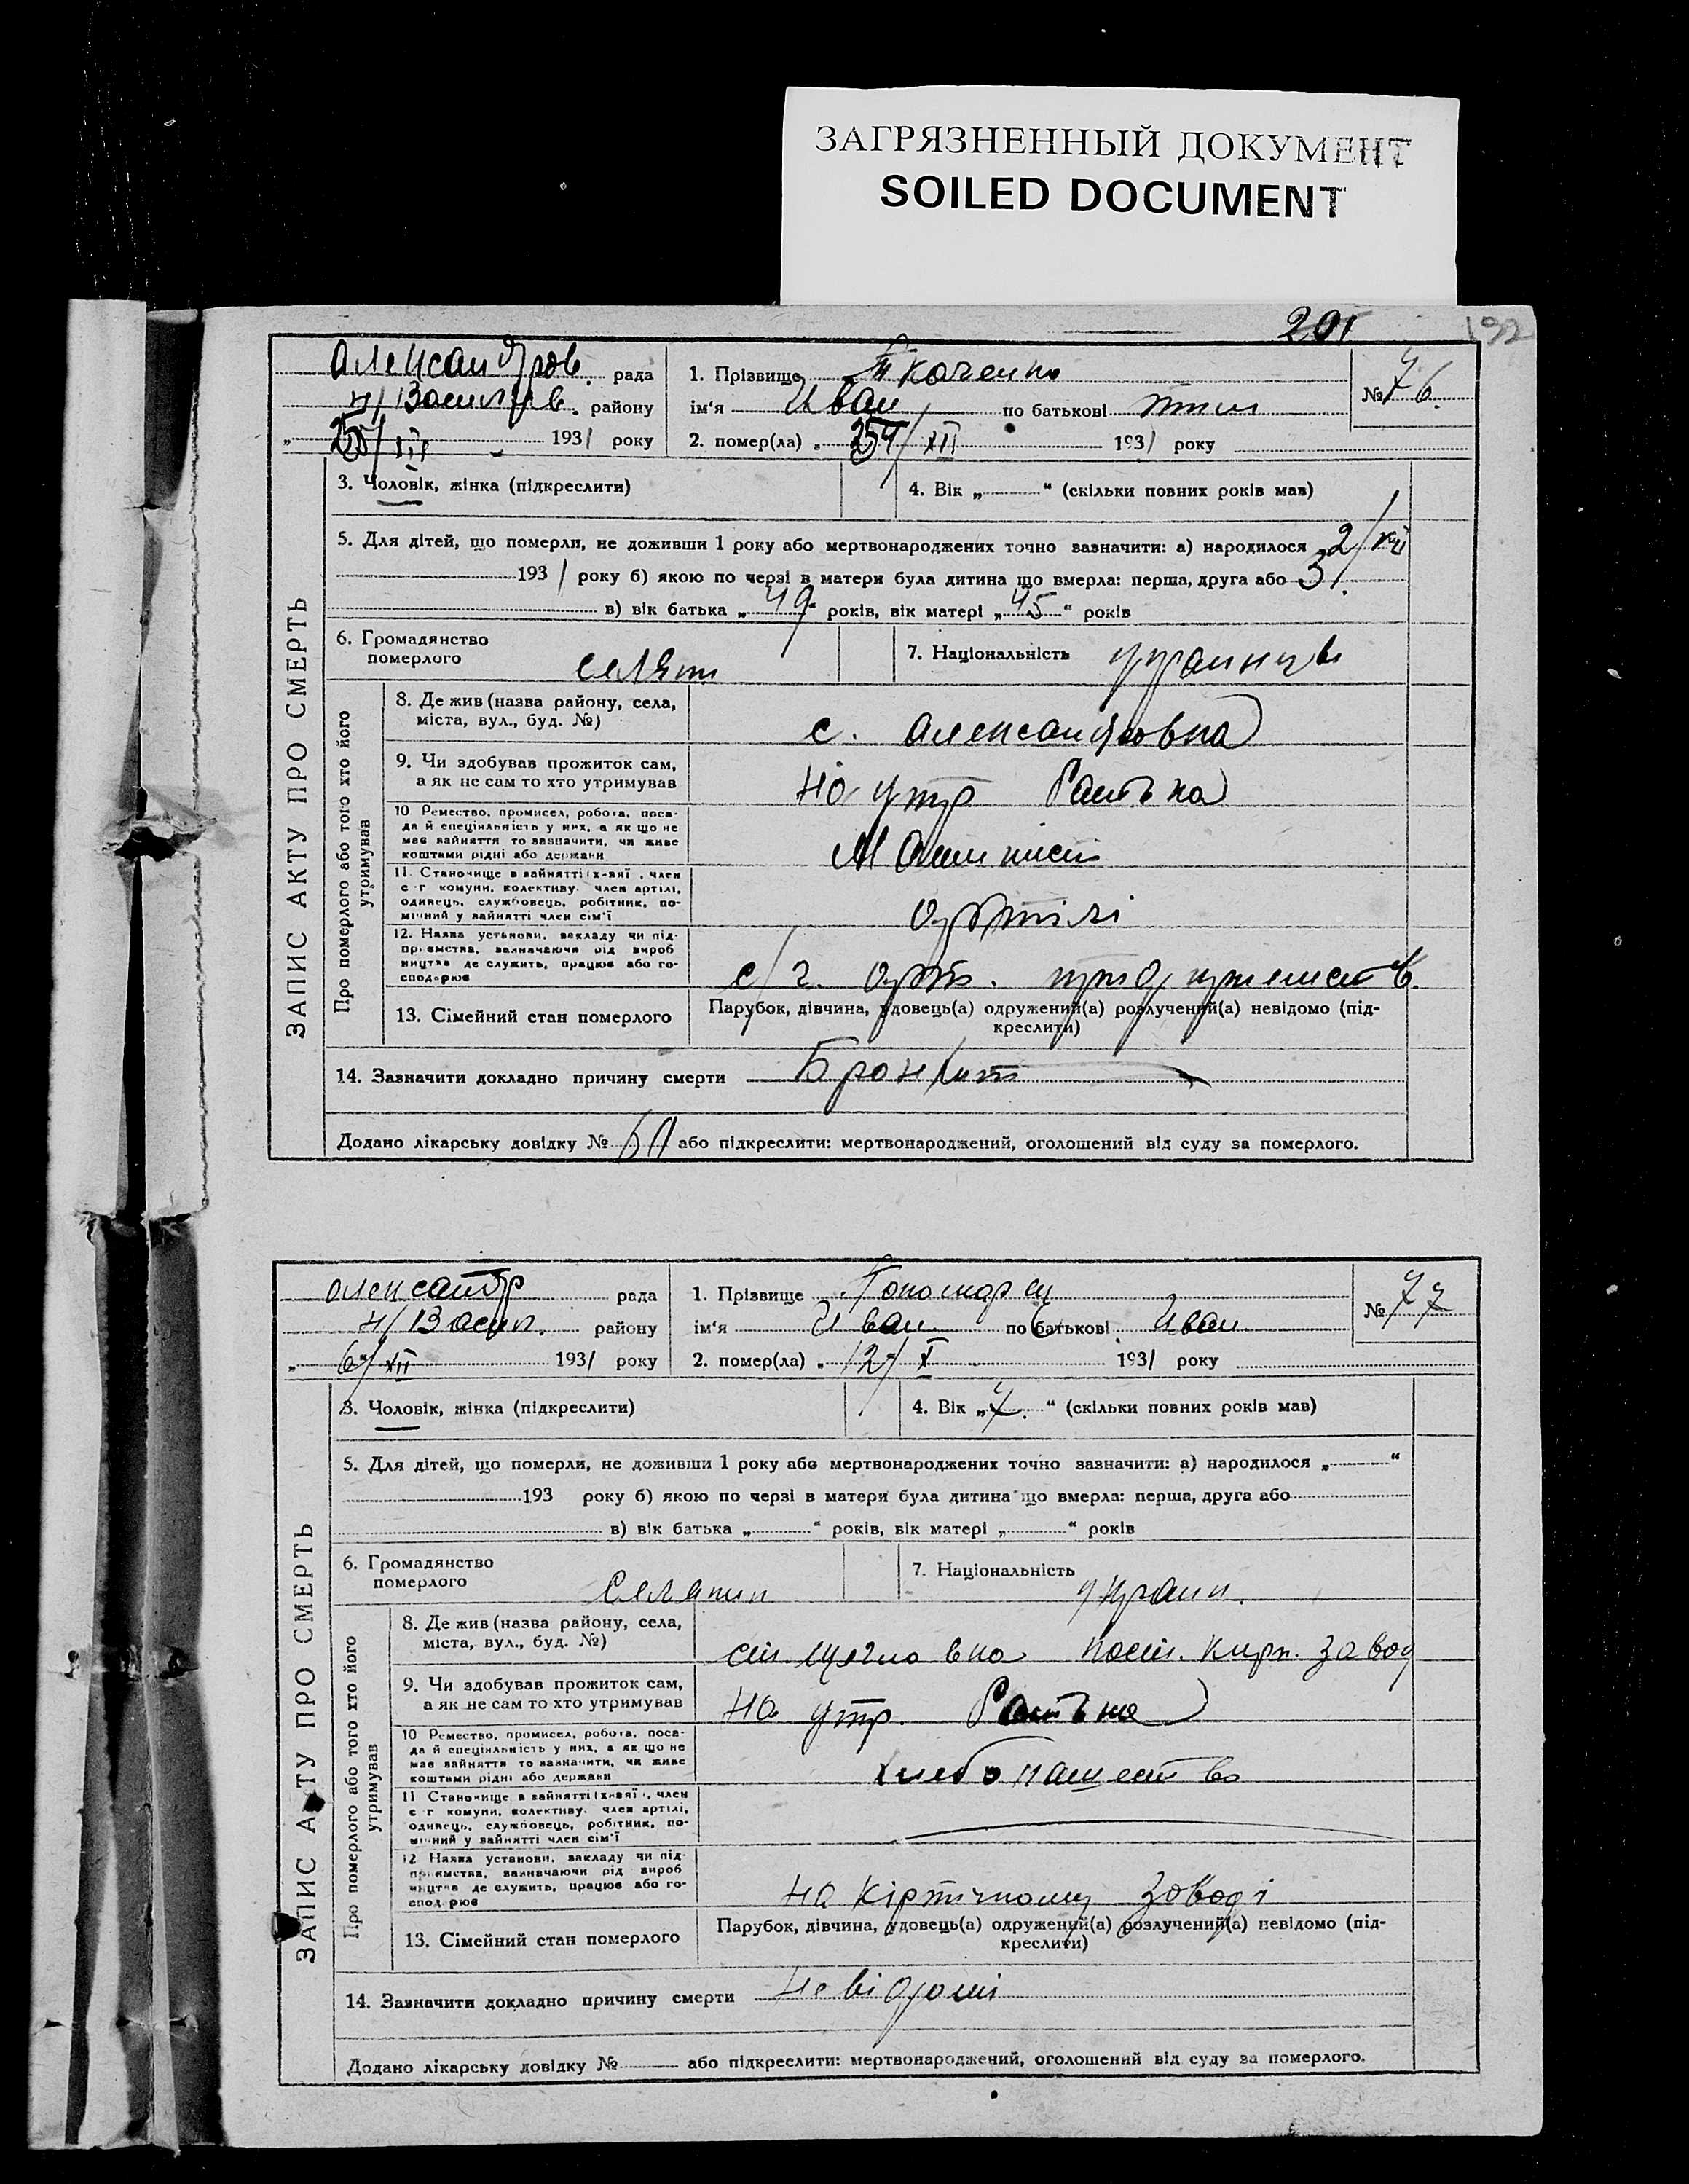 ЗАГРЯЗНЕННЫЙ ДОКУМЕНТ
SOILED DOCUMENT
201
192
Александров. рада
н/Васил р—в. району
25/XII 1931 року
1. Прізвище Ткаченко
ім'я Иван по батькові
2. помер(ла) „ 24/XII 1931 року
№ 76.
ЗАПИС АКТУ ПРО СМЕРТЬ
3. Чоловік, жінка (підкреслити)
4. Вік „ “ (скільки повних років мав)
5. Для дітей, що померли, не доживши 1 року або мертвонароджених точно зазначити: а) народилося 2/XII
1931 року б) якою по черзі в матери була дитина що вмерла: перша, друга або 3.
в) вік батька „49“ років, вік матері „45“ років
6. Громадянство
померлого селян
7. Національність украинць
Про померлого або того хто його
утримував
8. Де жив (назва району, села,
міста, вул., буд. №)
с. Александровка
9. Чи здобував прожиток сам,
а як не сам то хто утримував
на утр батька
10 Ремество, промисел, робота, поса-
да й спеціяльність у них, а як що не
має зайняття то зазначити, чи живе
коштами рідні або держави
Машинист
11. Становище в зайнятті (х-вяї, член
с-г комуни, колективу, член артілі,
одинець, службовець, робітник, по-
мічний у зайнятті член сім'ї
артілі
12. Назва установи, закладу чи під-
приємства, зазначаючи рід вироб
ництва де служить, працює або го-
сподарює
с/г. арт.
13. Сімейний стан померлого
Парубок, дівчина, удовець(а) одружений(а) розлучений(а) невідомо (під-
креслити)
14. Зазначити докладно причину смерти Бронхит
Додано лікарську довідку № або підкреслити: мертвонароджений, оголошений від суду за померлого.
Александр рада
н/Васил. району
„ 6/XII 1931 року
1. Прізвище Пономарец
ім'я Иван по батькові Иван
2. помер(ла) „ 12/X 1931 року
№ 77
ЗАПИС АКТУ ПРО СМЕРТЬ
3. Чоловік, жінка (підкреслити)
4. Вік „7.“ (скільки повних років мав)
5. Для дітей, що померли, не доживши 1 року або мертвонароджених точно зазначити: а) народилося „ “
193 року б) якою по черзі в матери була дитина що вмерла: перша, друга або
в) вік батька „ “ років, вік матері „ “ років
6. Громадянство
померлого Селянин
7. Національність украин.
Про померлого або того хто його
утримував
8. Де жив (назва району, села,
міста, вул., буд. №)
кирп. завод
9. Чи здобував прожиток сам,
а як не сам то хто утримував
на утр. батька
10 Ремество, промисел, робота, поса-
да й спеціяльність у них, а як що не
має зайняття то зазначити, чи живе
коштами рідні або держави
хлебопашество
11 Становище в зайнятті (х-вяї, член
с-г комуни, колективу, член артілі,
одинець, службовець, робітник, по-
мічний у зайнятті член сім'ї
12 Назва установи, закладу чи під-
приємства, зазначаючи рід вироб
ництва де служить, працює або го-
сподарює
на кірпічному заводі
13. Сімейний стан померлого
Парубок, дівчина, удовець(а) одружений(а) розлучений(а) невідомо (під-
креслити)
14. Зазначити докладно причину смерти невідомі
Додано лікарську довідку № або підкреслити: мертвонароджений, оголошений від суду за померлого.